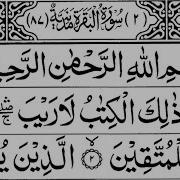 (٢) سُوْرَةُ الْبَقَرَةِ مَدَنِيَّةٌ (٨٧)
مِ اللهِ الرَّحْمٰنِ الرَّحِي
ذٰلِكَ الْكِتٰبُ لَا رَيْبَ
لِّلْمُتَّقِيْنَ ۝٢ الَّذِيْنَ يُ